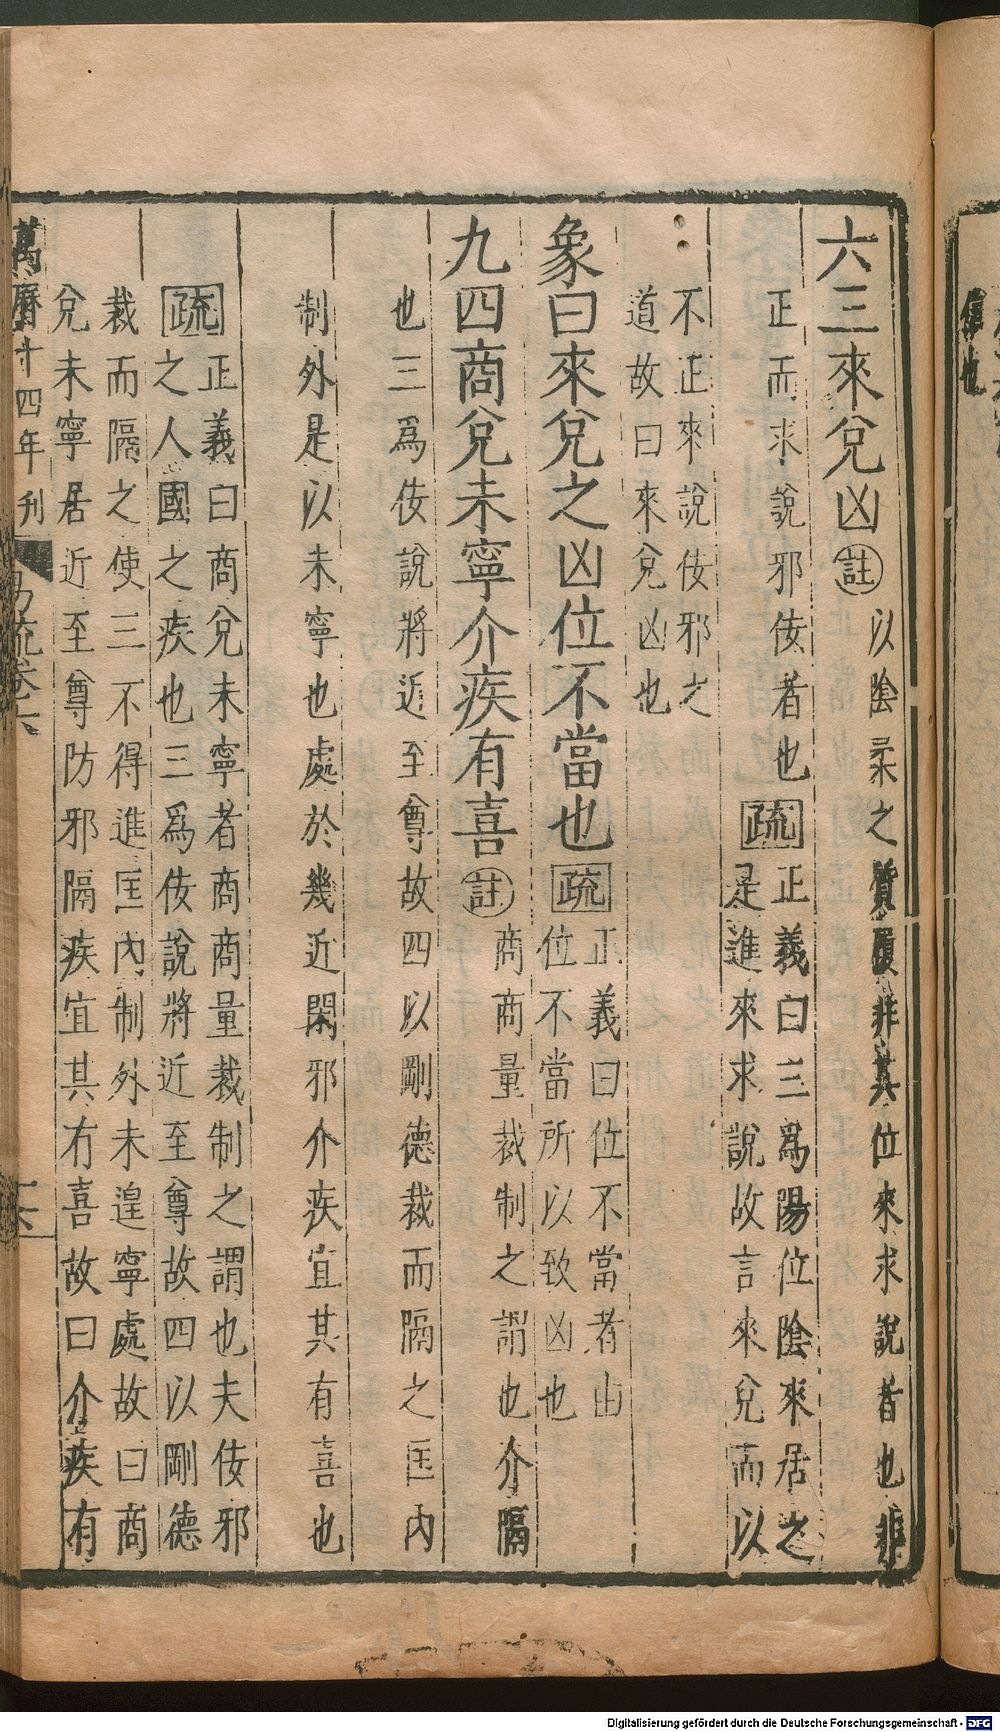 六三來兌凶註以陰柔之質履非其位來求說者也非
正而求說邪佞者也疏正義曰三爲陽位陰來居之
是進來求說故言來兌而以
不正來說佞邪之
道故曰來兌凶也
象曰來兌之凶位不當也疏正義曰位不當者由
位不當所以致凶也
九四商兌未寧介疾有喜註商商量裁制之謂也介隔
也三爲佞說將近至尊故四以剛德裁而隔之匡內
制外是以未寧也處於幾近閑邪介疾宜其有喜也
疏正義曰商兌未寧者商商量裁制之謂也夫佞邪
之人國之疾也三爲佞說將近至尊故四以剛德
裁而隔之使三不得進匡內制外未遑寧處故曰商
兌未寧居近至尊防邪隔疾宜其有喜故曰介疾有
萬曆十四年刊
易疏卷六
信也
Digitalisierung gefördert durch die Deutsche Forschungsgemeinschaft - DFG